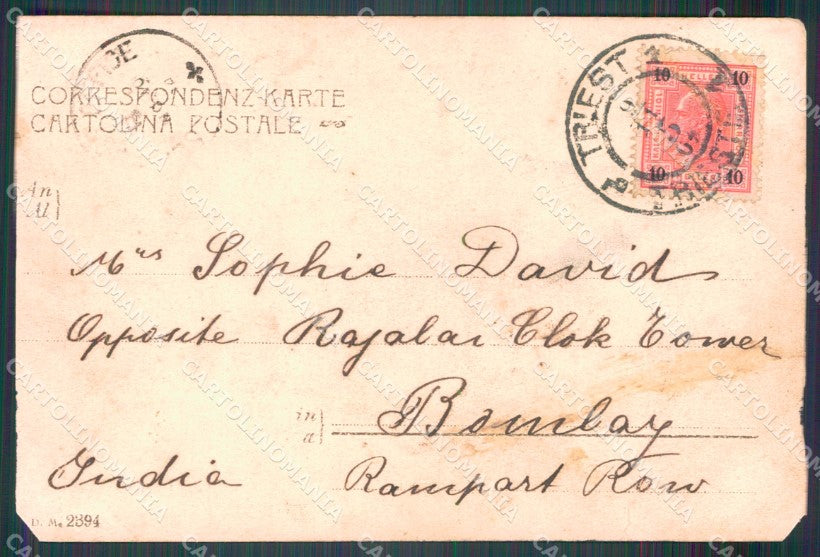 CORRESPONDENZ-KARTE
CARTOLINA POSTALE
TRIEST 1
10 10
10 10
in
Mrs Sophie David
Opposite Rajalai Clok Tower
in
a
Bombay
India Rampart Row
D. M. 2394
CARTOLINOMANIA